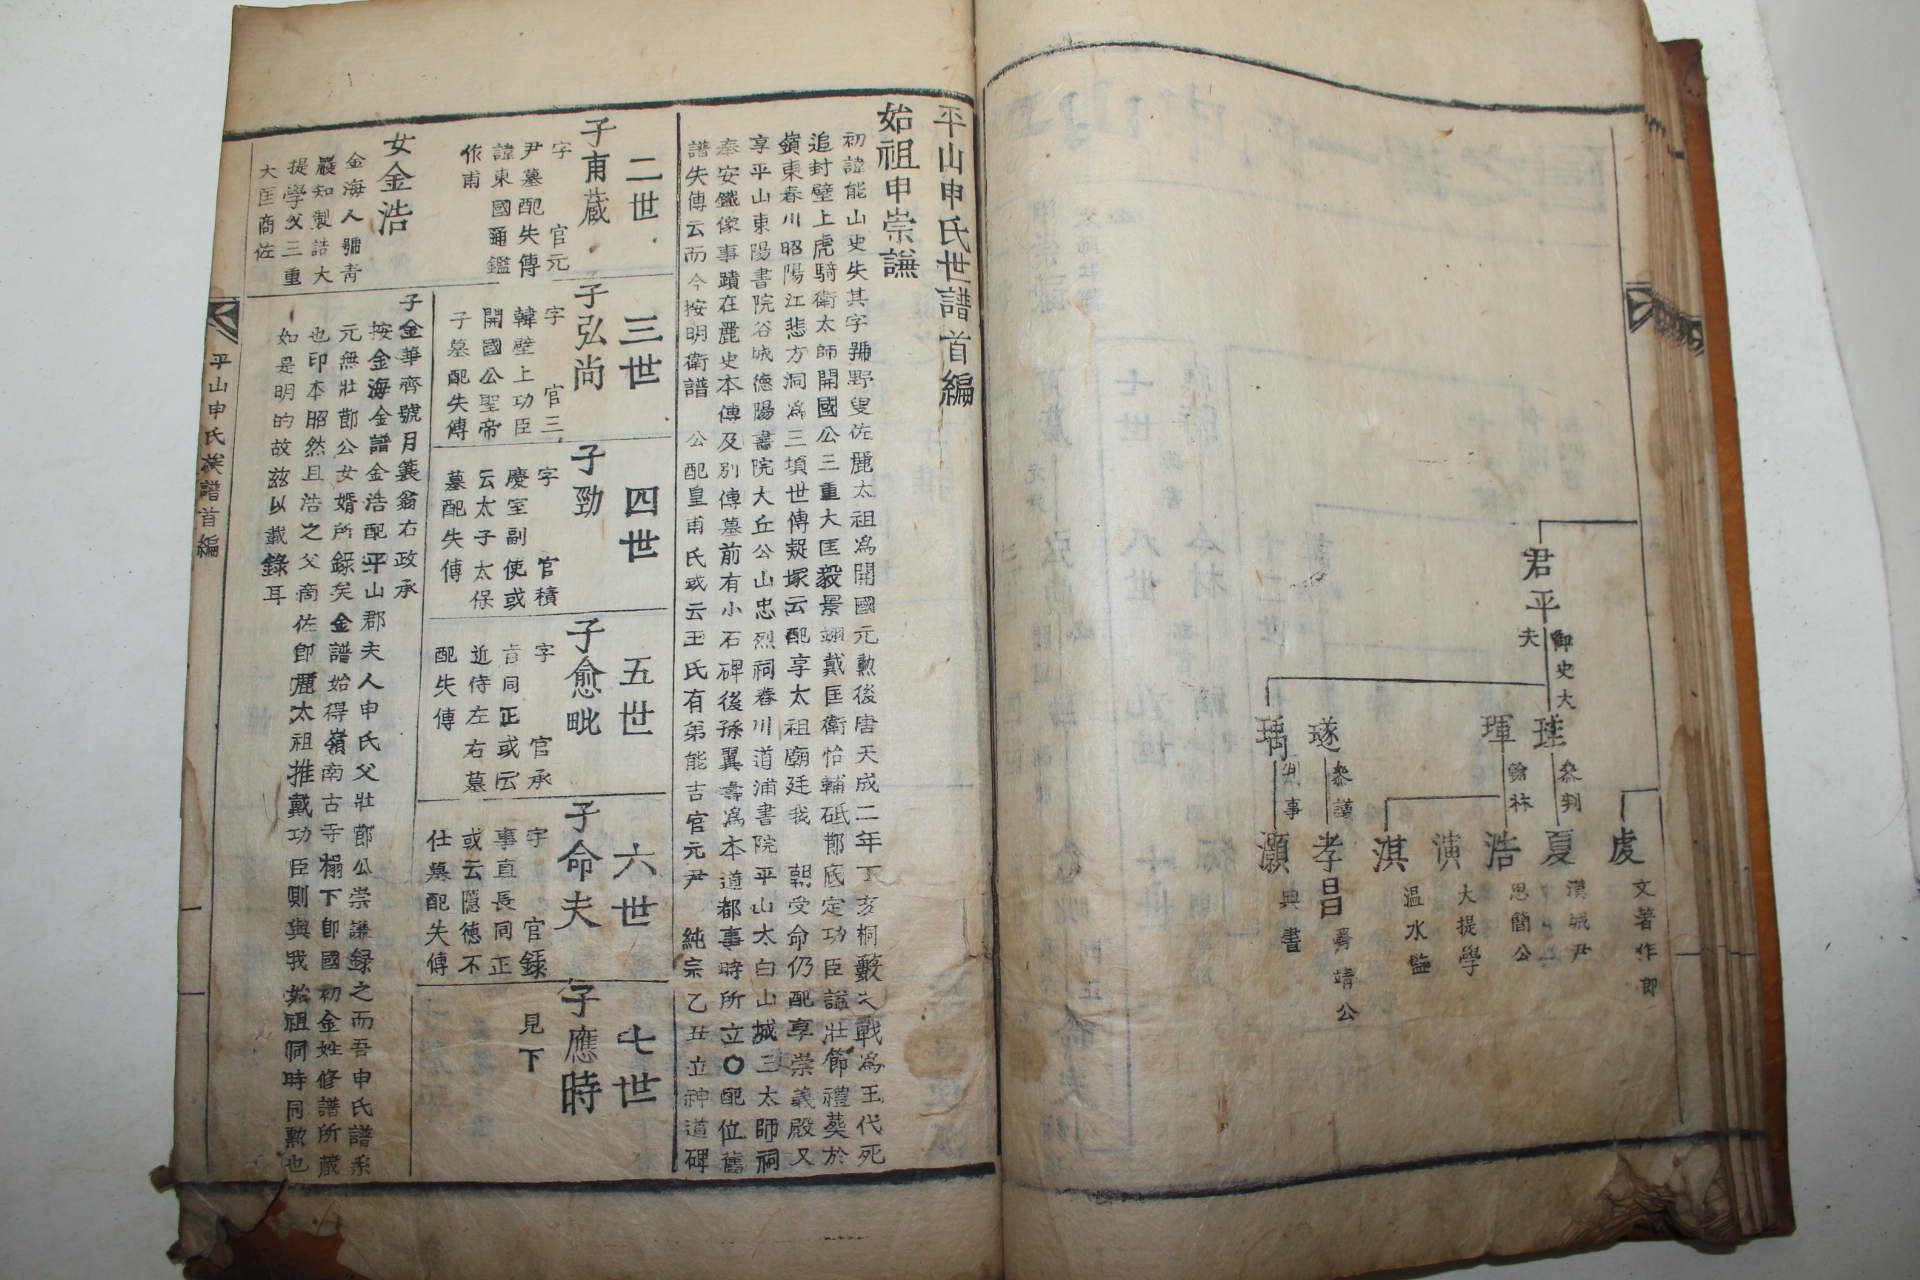 君平 御史大夫
瑾 參判
琿 翰林
璲 參議
瑀 判事
虔 文著作郎
夏 漢城尹
浩 思簡公
演 大提學
淇 溫水監
孝昌 齊靖公
灝 典書
平山申氏世譜首編
始祖申崇謙
初諱能山史失其字號野叟佐麗太祖爲開國元勳後唐天成二年丁亥桐藪之戰爲王代死
追封壁上虎騎衛太師開國公三重大匡毅景翊戴匡衛怡輔砥柱功臣諡壯節禮葬於
嶺東春川昭陽江悲方洞爲三墳世傳疑塚云配享太祖廟廷我 朝受命仍配享崇義殿又
享平山東陽書院谷城德陽書院大丘公山忠烈祠春川道浦書院平山太白山城三太師祠
奉安鐵像事蹟在麗史本傳及別傳墓前有小石碑後孫翼壽爲本道都事時所立〇配位舊
譜失傳云而今按明衛譜 公配皇甫氏或云王氏有弟能吉官元尹 純宗乙丑立神道碑
二世
子甫藏
字 官元
尹墓配失傳
諱東國通鑑
作甫
三世
子弘尚
字 官三
韓壁上功臣
開國公聖帝
子墓配失傳
四世
子勁
字 官積
慶室副使或
云太子太保
墓配失傳
五世
子愈毗
字 官承
肯同正或云
近侍左右墓
配失傳
六世
子命夫
字 官錄
事直長同正
或云隱德不
仕墓配失傳
七世
子應時
見下
女金浩
金海人號靑
巖知製誥大
提學父三重
大匡商佐
子金華齊號月簑翁右政承
按金海金譜金浩配平山郡夫人申氏父壯節公崇謙錄之而吾申氏譜系
元無壯節公女婿所錄矣金譜始得嶺南古寺榻下卽國初金姓修譜所藏
也印本昭然且浩之父商佐卽麗太祖推戴功臣則與我始祖同時同勳也
如是明的故玆以載錄耳
平山申氏族譜首編